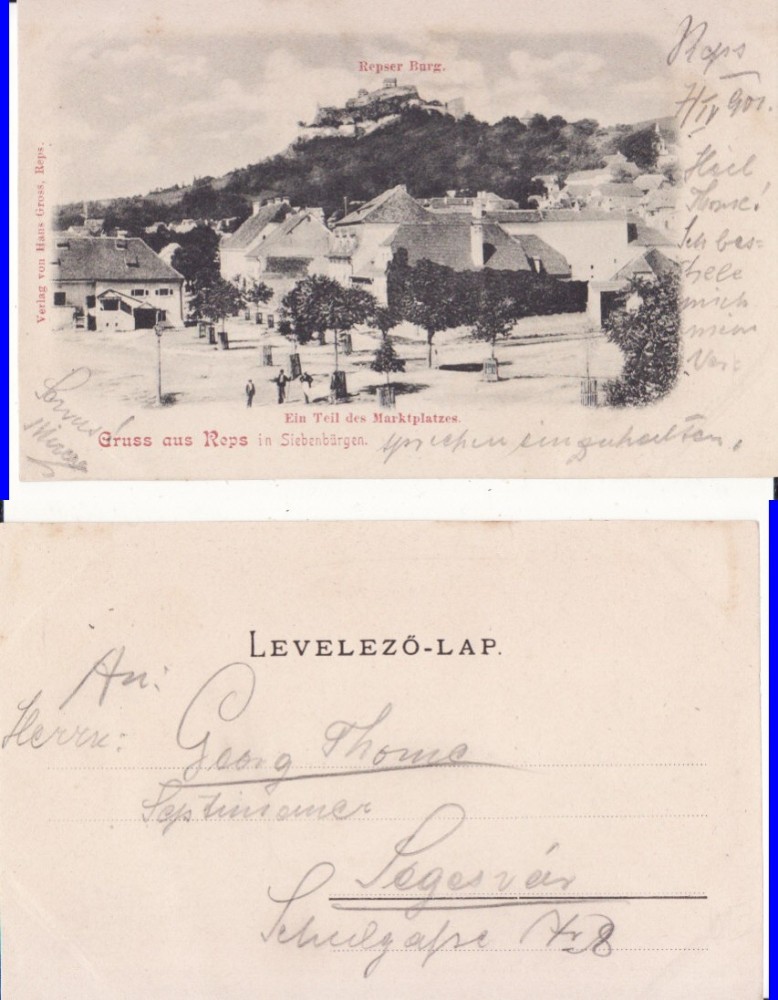 Repser Burg.
Verlag von Hans Gross, Reps.
Reps
7/IV 901.
Heil
Thome!
Ich bes-
trebe
mich
mein
Ver-
sprechen einzuhalten,
Servus!
Ein Teil des Marktplatzes.
Gruss aus Reps in Siebenbürgen.
LEVELEZŐ-LAP.
An:
Herrn:
Georg Thome
Septimaner
Segesvár
Schulgasse Nr 8